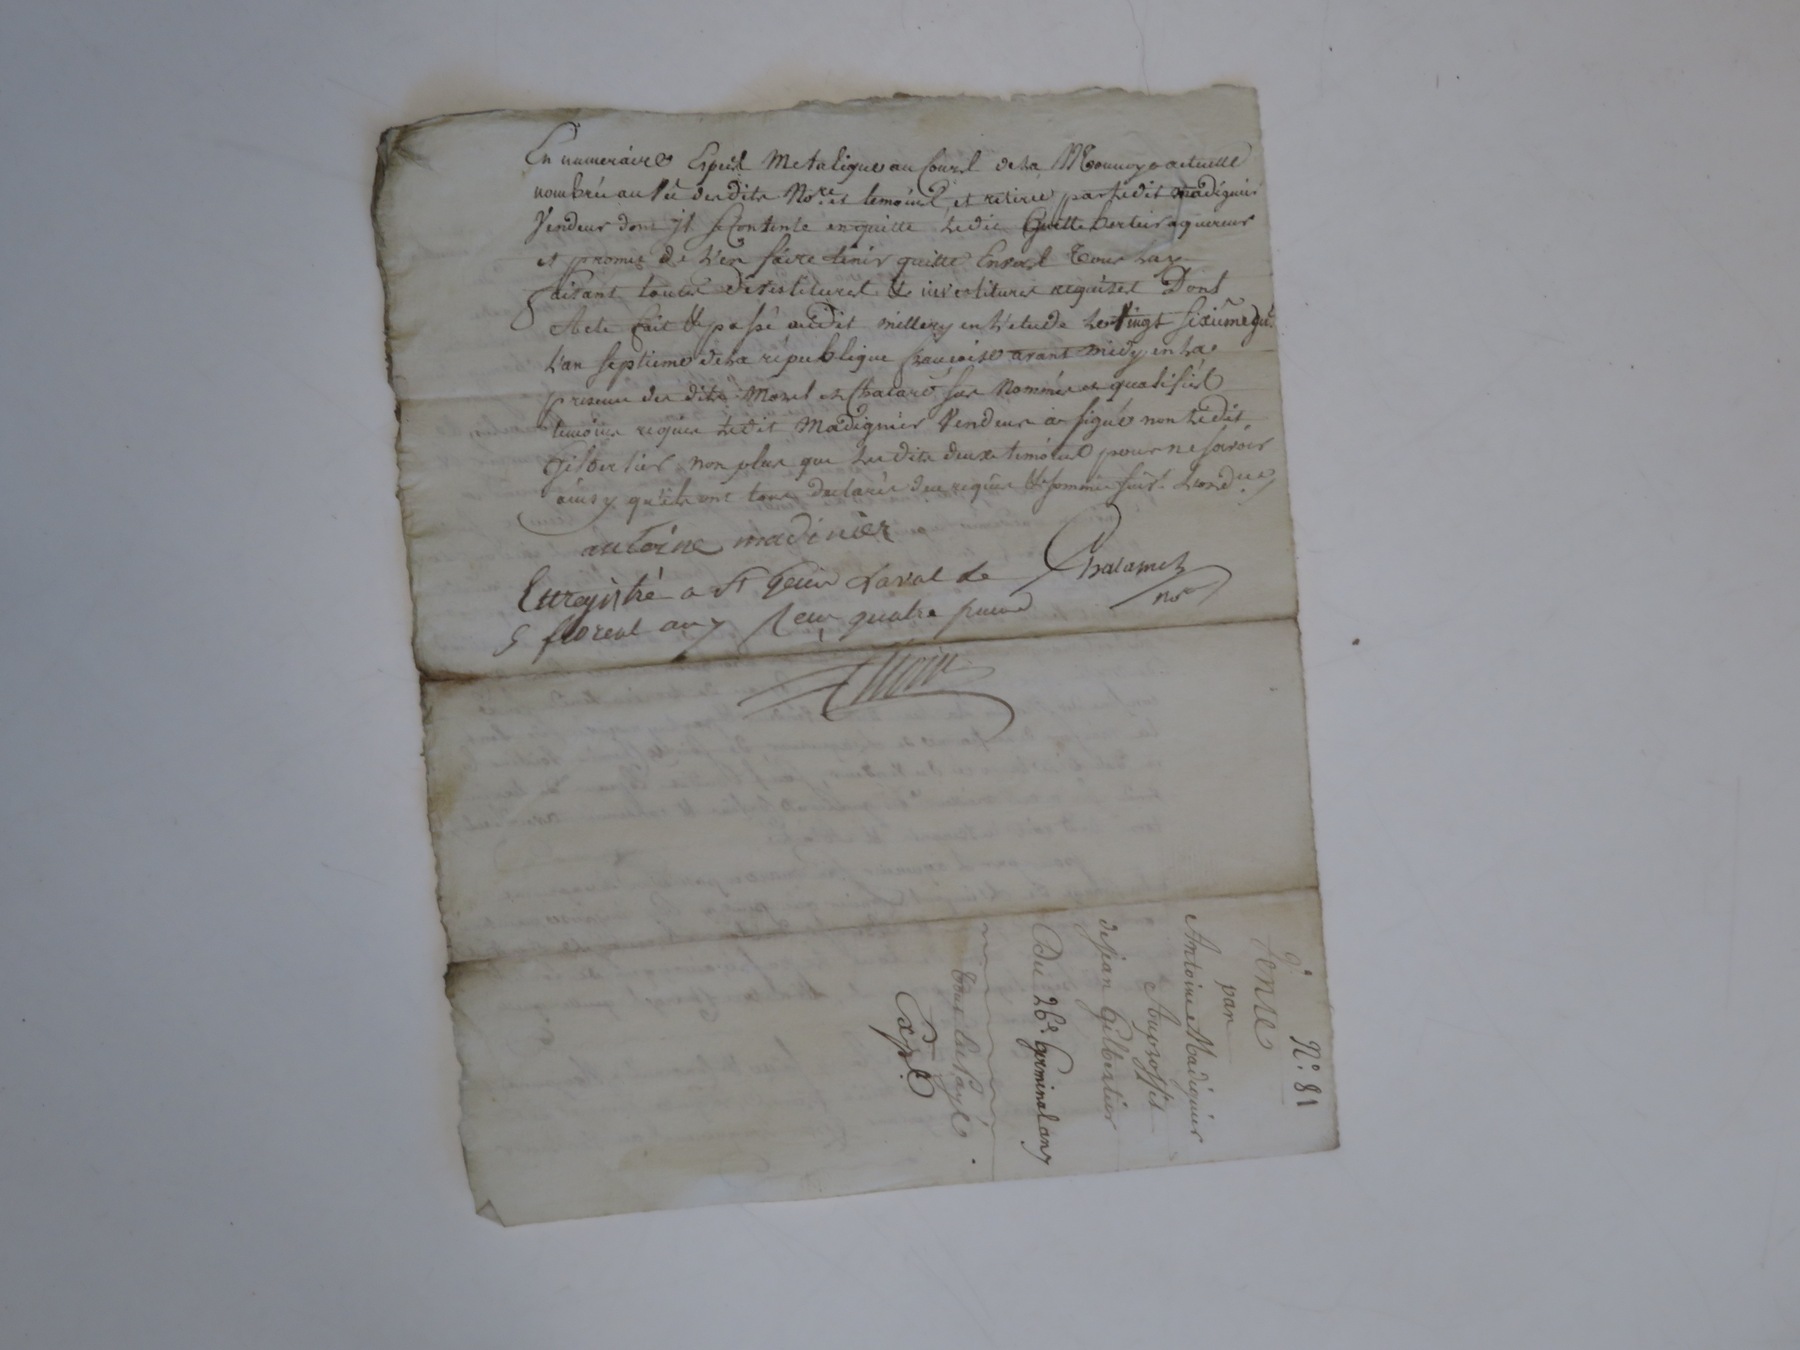 En numeraire Espéces Metalique au Cours de la Monnoye actuelle
nombrée au vû desdits No.re et temoins, et retirée par ledit Madignier
Vendeur dont il se Contente en quitte ledit Gilbertier aquereur
et promet de l'en faire tenir quitte Envers Tous
faisant toutes devestitures & investitures requises Dont
Acte fait & passé audit millery en l'etude le Vingt sixieme
L'an septieme de la république francoise avant midy en la
presence des dits Morel et Chatard sus Nommés et qualifiés
temoins requis ledit Madignier Vendeur a signé non ledit
Gilbertier non plus que les dits deux temoins pour ne savoir
ainsy qu'ils ont tous declarés de ce requis & sommés
antoine madinier
Chalamel
no.re
Enregistré a St Genis Laval le
5 floreal an 7 Recu quatre
N.o 81
Vente
par
Antoine Madignier
Au proffit
de Jean Gilbertier
Du 26.e Germinal an 7
Exp.